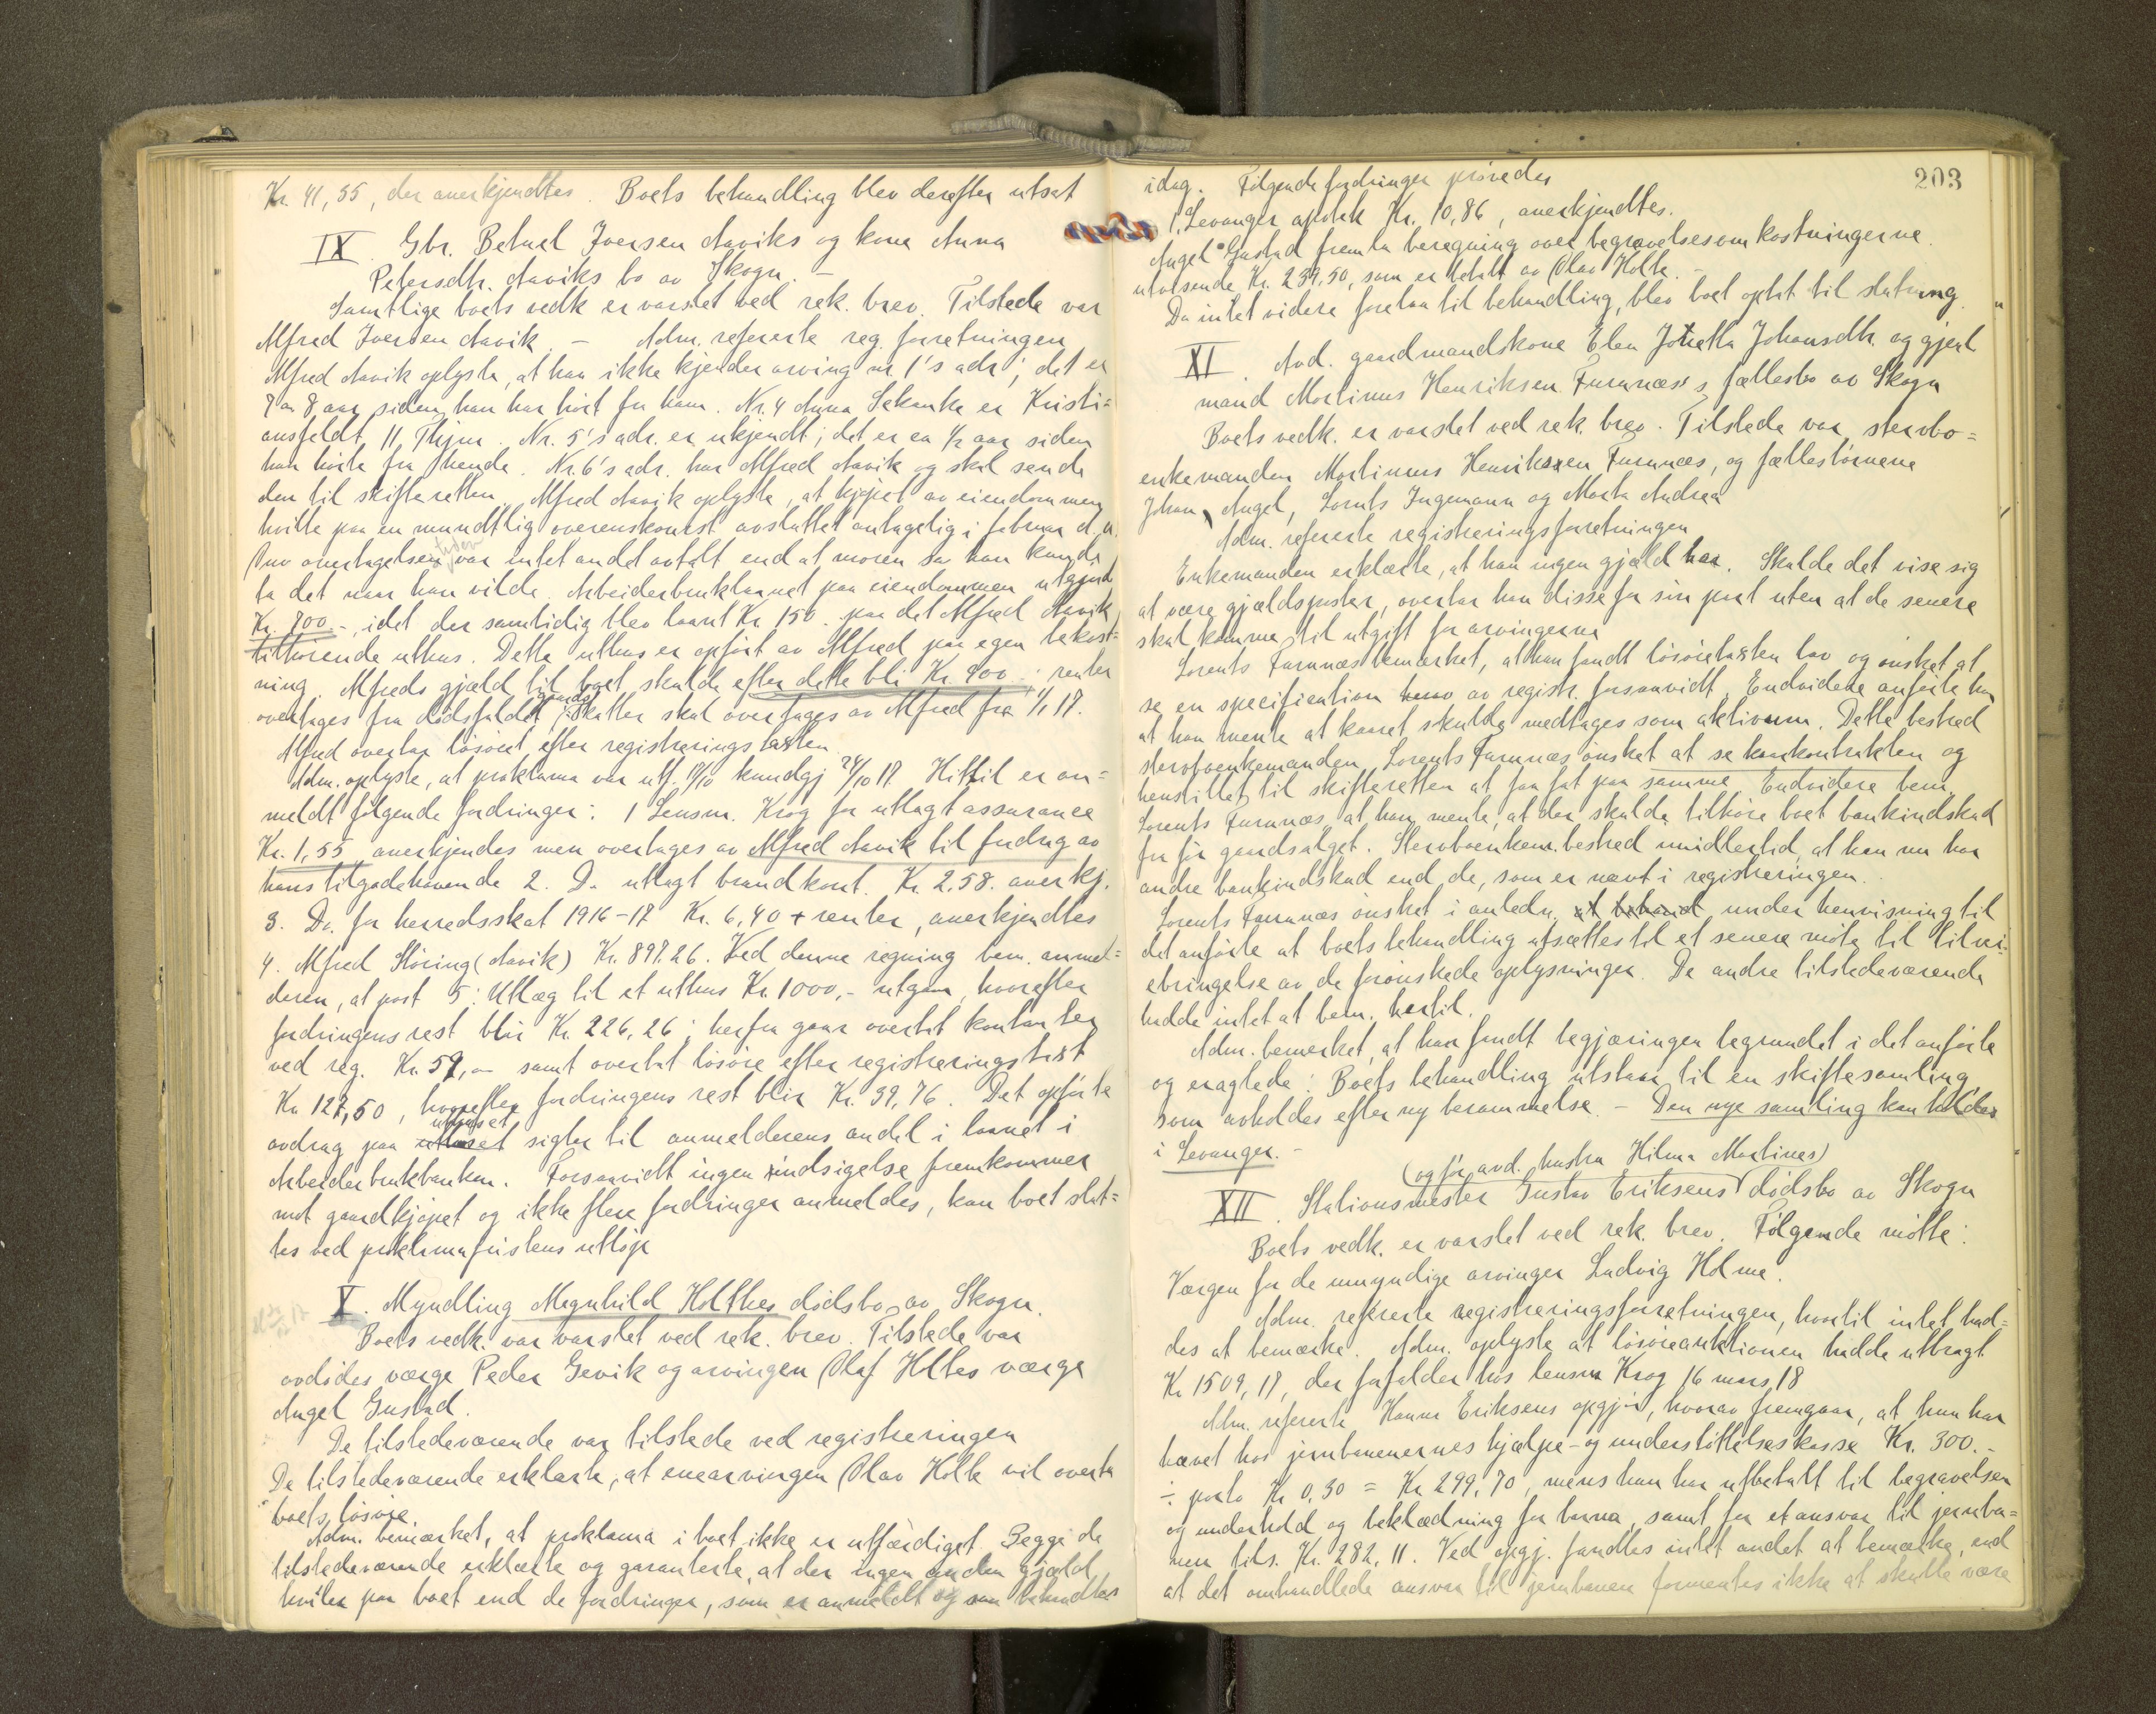 Kr. 41,55, der anerkjendtes. Boets behandling blev derefter utsat
IX. Gbr. Betuel Iversen Aaviks og kone Anna
Petersdtr. Aaviks bo av Skogn. –
Samtlige boets vedk er varslet ved rek. brev. Tilstede var
Alfred Iversen Aavik. – Adm. refererte reg. forretningen
Alfred Aavik oplyste, at han ikke kjender arving nr 1's adr; det er
8 aar siden han har hört fra ham. Nr. 4 Anna er Kristi=
ansfeldt 11, Nr. 5's adr. er ukjendt; det er ca ½ aar siden
han hörte fra hende. Nr. 6's adr. har Alfred Aavik og skal sende
den til skifteretten. Alfred Aavik oplyste, at kjöpet av eiendommen
hvilte paa en mundtlig overenskomst avsluttet antagelig i februar d. a.
Om overtagelsen tiden var intet andet avtalt end at moren sa han kunde
ta det naar han vilde. Arbeiderbruklaanet paa eiendommen utgjorde
Kr. 700.–, idet der samtidig blev laant Kr 150. paa det Alfred Aavik
tilhörende uthus. Dette uthus er opfört av Alfred paa egen bekost=
ning. Alfreds gjæld til boet skulde efter dette bli Kr. 900.–; renter
overtages fra dödsfaldet, Skatter skal overtages av Alfred fra 1/1 17.
Alfred overtar lösöret efter registreringstaksten.
Adm. oplyste, at proklama var utf. kundgj 24/10 17. Hittil er an=
meldt fölgende fordringer: 1 Lensm. Krog for utlagt assurance
Kr. 1,55 anerkjendes men overtages av Alfred Aavik til fradrag av
hans tilgodehavende 2. Do utlagt brandkont. Kr. 2,58. anerkj.
3. Do. for herredsskat 1916–17 Kr. 6,40 + renter, anerkjendtes
4. Alfred Störing (Aavik) Kr. 897.26. Ved denne regning bem. anmel=
deren, at post 5: Utlæg til et uthus Kr. 1000,– utgaar, hvorefter
fordringens rest blir Kr. 226,26; herfra gaar overtat kontanter
ved reg. Kr. 59,– samt overtat lösöre efter registreringstakst
Kr 127,50, hvorefter fordringens rest blir Kr. 39,76. Det opförte
avdrag paa uthuset sigter til anmelderens andel i laanet i
Arbeiderbrukbanken. Forsaavidt ingen indsigelse fremkommer
mot gaardkjöpet og ikke flere fordringer anmeldes, kan boet slut=
tes ved proklamafristens utlöp
X. Myndling Magnhild Holthes dödsbo av Skogn.
Boets vedk. var varslet ved rek. brev. Tilstede var
avdödes værge Peder Gevik og arvingen Olaf Holtes værge
Angel Gustad.
De tilstedeværende var tilstede ved registreringen
De tilstedeværende erklærte, at enearvingen Olav Holte vil overta
boets lösöre.
Adm. bemærket, at proklama i boet ikke er utfærdiget. Begge de
tilstedeværende erklærte og garanterte, at der ingen anden gjæld
hviler paa boet end de fordringer, som er anmeldt og som behandles
203
idag. Fölgende fordringer prövedes
1, Levanger apotek Kr. 10,86, anerkjendtes.
Angel Gustad fremla beregning over begravelsesomkostningerne
utvisende Kr. 239,50, som er betalt av Olav Holte. –
Da intet videre forelaa til behandling, blev boet optat til slutning.
XI. Avd. gaardmandskone Elen Johansdtr. og gjenl
mand Martinus Henriksen Furunæs's fællesbo av Skogn
Boets vedk. er varslet ved rek. brev. Tilstede var stervbo=
enkemanden Martinus Henriksen Furunæs, og fællesbörnene
Johan, Angel, Lorents Ingemann og Marta Andrea
Adm. refererte registreringsforretningen
Enkemanden erklærte, at han ingen gjæld har. Skulde det vise sig
at være gjældsposter, overtar han disse for sin part uten at de senere
skal komme til utgift for arvingerne
Lorents Furunæs bemærket, at han fandt lösöretaksten lav og önsket at
se en specification av registr. forsaavidt. Endvidere anförte han
at han mente at kaaret skulde medtages som aktivum. Dette bestred
stervboenkemanden. Lorents Furunæs önsket at se kaarkontrakten og
henstillet til skifteretten at faa fat paa samme. Endvidere bem.
Lorents Furunæs, at han mente, at der skulde tilhöre boet bankindskud
fra för gaardsalget. Stervboenkem. bestred imidlertid, at han nu har
andre bankindskud end de, som er nævnt i registreringen.
Lorents Furunæs önsket i anledn. under henvisning til
det anförte at boets behandling utsættes til et senere möte til tilvei=
ebringelse av de forönskede oplysninger. De andre tilstedeværende
hadde intet at bem. hertil.
Adm. bemerket, at han fandt begjæringen begrundet i det anförte
og eragtede: Boets behandling utstaar til en skiftesamling,
som avholdes efter ny berammelse. – Den nye samling kan holdes
i Levanger. –
(og för avd. hustru Hilma Martines)
XII. Stationsmester Gustav Eriksens dödsbo av Skogn
Boets vedk. er varslet ved rek. brev. Fölgende mötte:
Værgen for de umyndige arvinger Ludvig Holme.
Adm. refererte registreringsforretningen, hvortil intet had=
des at bemærke. Adm. oplyste at lösöreauktionen hadde utbragt
Kr 1509,17, der forfalder hos lensm Krog 16 mars 18
Adm. refererte Hanna Eriksens opgjör, hvorav fremgaar, at hun har
hævet hos jernbanenernes hjælpe- og understöttelseskasse Kr. 300.–
÷ porto Kr 0,30 = Kr. 299,70, mens hun har utbetalt til begravelsen
og underhold og beklædning for barna, samt for et ansvar til jernba=
nen tils. Kr. 282,11. Ved opgj. fandtes intet andet at bemærke, end
at det omhandlede ansvar til jernbanen formentes ikke at skulle være